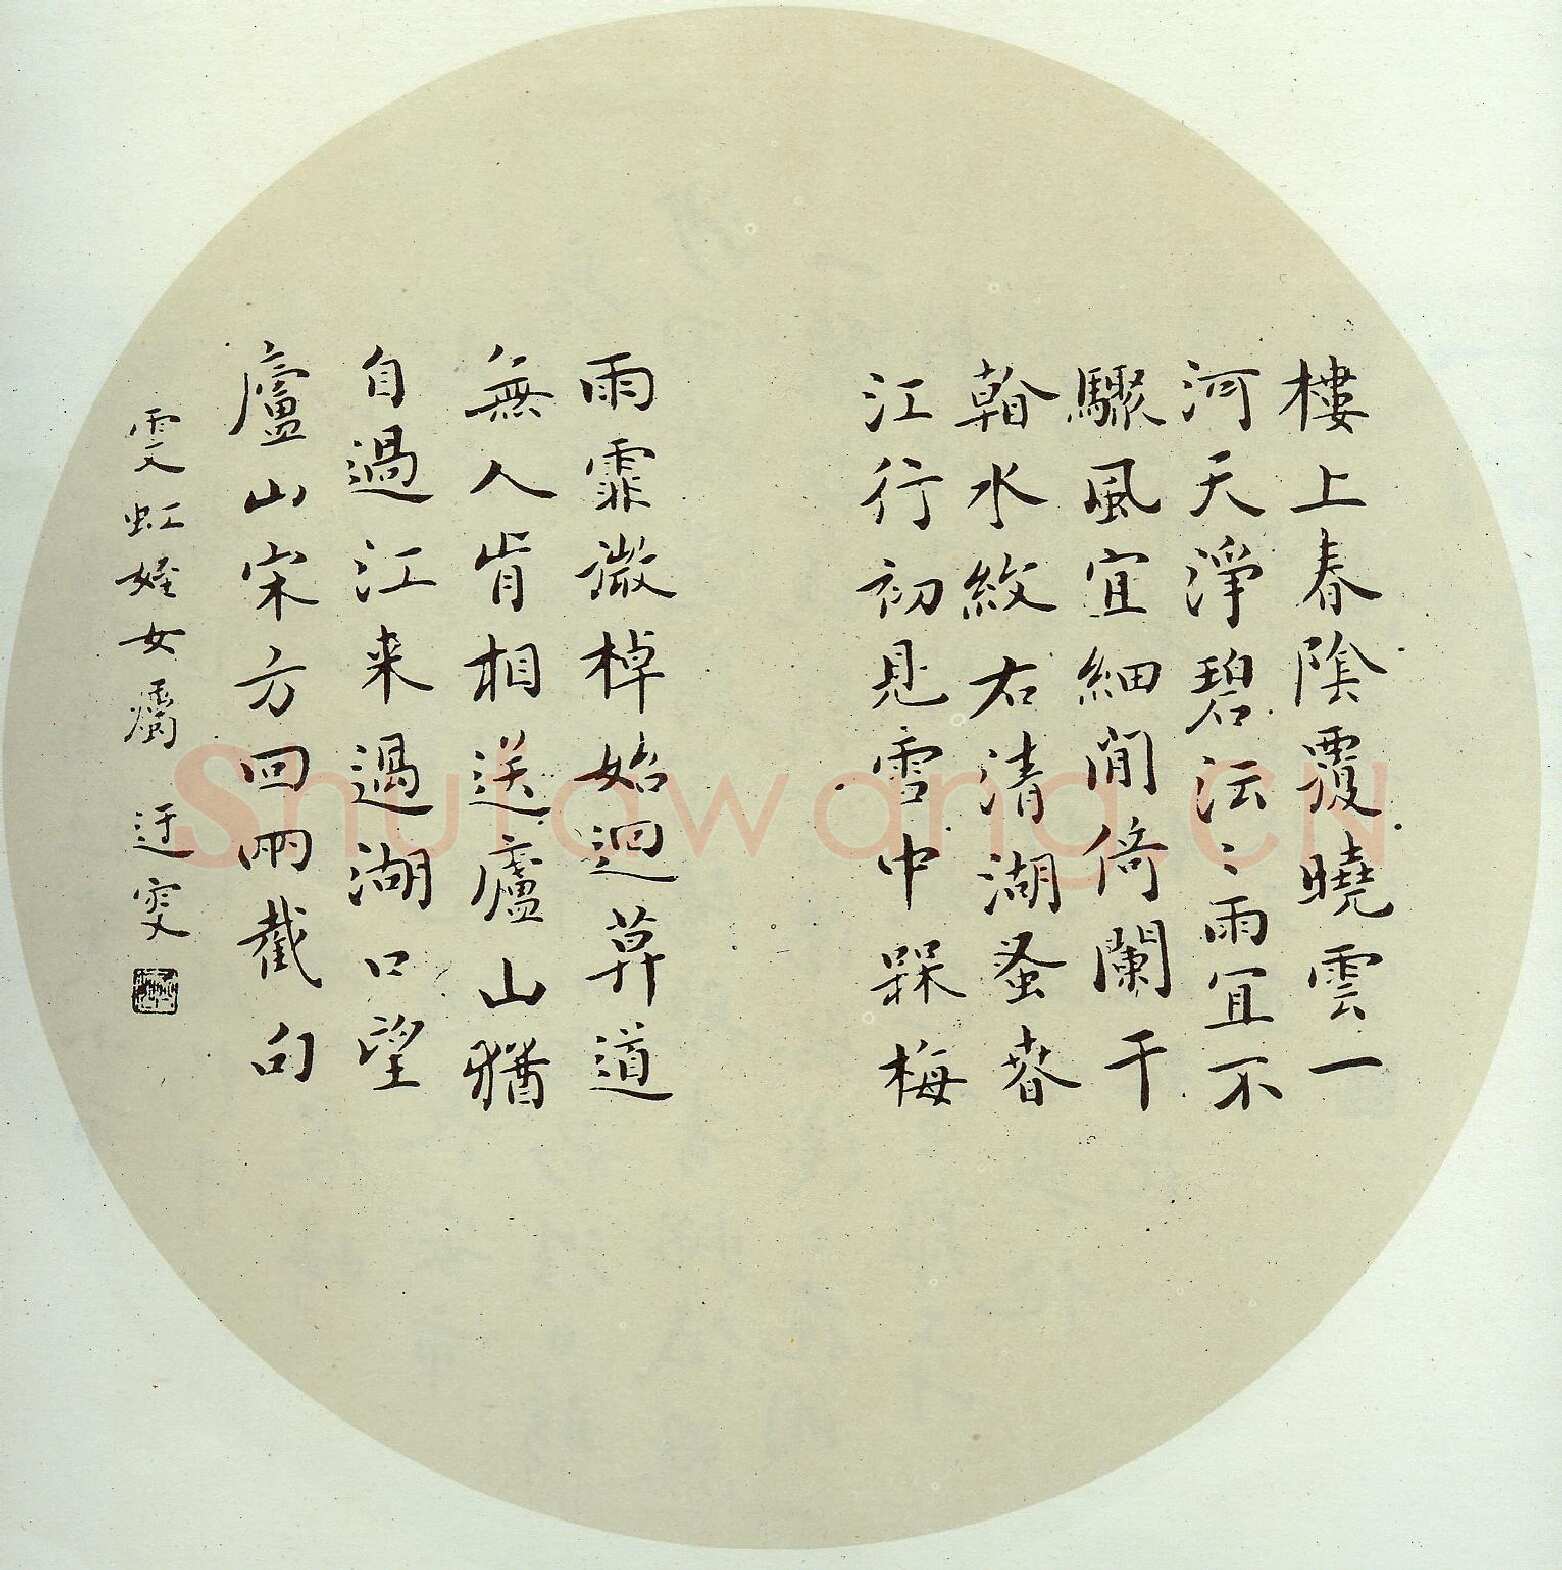 樓上春陰覆曉雲一
河天淨碧沄〻雨宜不
驟風宜細閒倚闌干
𥉼水紋右清湖蚤春
江行初見雪中槑梅
雨霏微棹始迴莫道
無人肯相送廬山猶
自過江来過湖口望
廬山宋方回兩截句
雯虹姪女屬 迂叟
Shufawang.CN